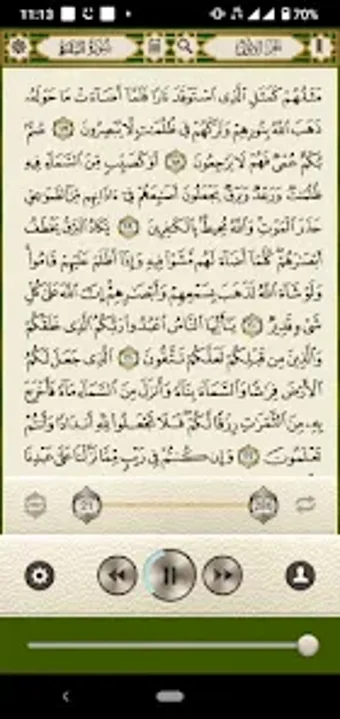 11:13 70%
سورة البقرة
الجزء الأول
مَثَلُهُمْ كَمَثَلِ الَّذِي اسْتَوْقَدَ نَارًا فَلَمَّا أَضَاءَتْ مَا حَوْلَهُ
ذَهَبَ اللَّهُ بِنُورِهِمْ وَتَرَكَهُمْ فِي ظُلُمَاتٍ لَا يُبْصِرُونَ ١٧ صُمٌّ
بُكْمٌ عُمْيٌ فَهُمْ لَا يَرْجِعُونَ ١٨ أَوْ كَصَيِّبٍ مِنَ السَّمَاءِ فِيهِ
ظُلُمَاتٌ وَرَعْدٌ وَبَرْقٌ يَجْعَلُونَ أَصَابِعَهُمْ فِي آذَانِهِمْ مِنَ الصَّوَاعِقِ
حَذَرَ الْمَوْتِ وَاللَّهُ مُحِيطٌ بِالْكَافِرِينَ ١٩ يَكَادُ الْبَرْقُ يَخْطَفُ
أَبْصَارَهُمْ كُلَّمَا أَضَاءَ لَهُمْ مَشَوْا فِيهِ وَإِذَا أَظْلَمَ عَلَيْهِمْ قَامُوا
وَلَوْ شَاءَ اللَّهُ لَذَهَبَ بِسَمْعِهِمْ وَأَبْصَارِهِمْ إِنَّ اللَّهَ عَلَى كُلِّ
شَيْءٍ قَدِيرٌ ٢٠ يَا أَيُّهَا النَّاسُ اعْبُدُوا رَبَّكُمُ الَّذِي خَلَقَكُمْ
وَالَّذِينَ مِنْ قَبْلِكُمْ لَعَلَّكُمْ تَتَّقُونَ ٢١ الَّذِي جَعَلَ لَكُمُ
الْأَرْضَ فِرَاشًا وَالسَّمَاءَ بِنَاءً وَأَنْزَلَ مِنَ السَّمَاءِ مَاءً فَأَخْرَجَ
بِهِ مِنَ الثَّمَرَاتِ رِزْقًا لَكُمْ فَلَا تَجْعَلُوا لِلَّهِ أَنْدَادًا وَأَنْتُمْ
تَعْلَمُونَ ٢٢ وَإِنْ كُنْتُمْ فِي رَيْبٍ مِمَّا نَزَّلْنَا عَلَى عَبْدِنَا
21 286